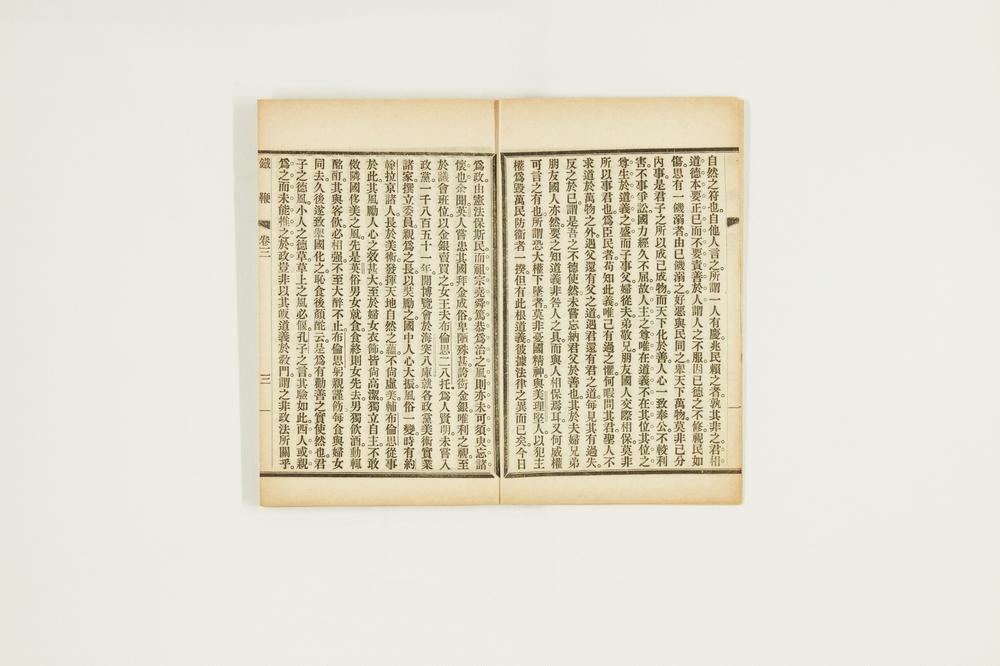 自然之符也。自他人言之。所謂一人有慶兆民賴之者。孰其非之。君相
道德本要正己。而不要責善於人。謂人之不服。因己德之不修。視民如
傷。思有一饑溺者。由己饑溺之。好惡與民同之。舉天下萬物。莫非己分
內事。是君子之所以成己成物。而天下化於善。人心一致奉公。不較利
害。不事爭訟。國力經久不屈。故人主之尊。唯在道義。不在其位。其位之
尊。生於道義之盛。而子事父。婦從夫。弟敬兄。朋友國人交際相保。莫非
所以事君也。爲臣民者。苟知此義。唯己有過之懼。何暇問其君。聖人不
求道於萬物之外。遇父還有父之道。遇君還有君之道。每見其有過失。
反之於己。謂是吾之不德使然。未嘗忘納君父於善也。其於夫婦兄弟
朋友國人亦然。要之知道義非咎人之具。而與人相保焉耳。又何威權
可言之有也。所謂恐大權下墜者。莫非憂國精神。與美理堅人。以犯主
權爲毀萬民防衞者一揆。但有此根道義。彼據法律之異而已矣。今日
爲政。由憲法保斯民。而祖宗堯舜篤恭爲治之風。則亦未可須臾忘諸
懷也。余聞英人嘗患其國拜金成俗。卑陋殊甚。誇衒金銀。唯利之視。至
於議會班位。以金銀賣買之。女王夫布倫思二八托。爲人賢明。未嘗入
政黨。一千八百五十一年。開博覽會於海突八庫。就各政黨美術實業
諸家。撰立委員。親爲之長。以奬勵之。國中人心大振。風俗一變。時有約
翰拉京諸人。長於美術。發揮天地自然之蘊。不尙虛美。輔布倫思從事
於此。其風勵人心之效甚大。至於婦女衣飾。皆尙高潔。獨立自主。不敢
傚隣國侈美之風。先是英俗。男女就食。食終則女先去。男獨飲酒。動輒
酩酊。其與客飲。必相强。不至大醉不止。布倫思躬親謹飭。每食與婦女
同去。久後遂致舉國化之。恥食後顏酡云。是爲有勸善之實使然也。君
子之德風。小人之德草。草上之風必偃。孔子之言。其驗如此。西人或親
爲之。而未能推之於政。豈非以其敀道義於敎門。謂之非政法所關乎。
鐵鞭 卷三 三